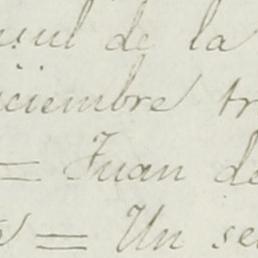 de la
iciembre tr
= Juan de
= Un se